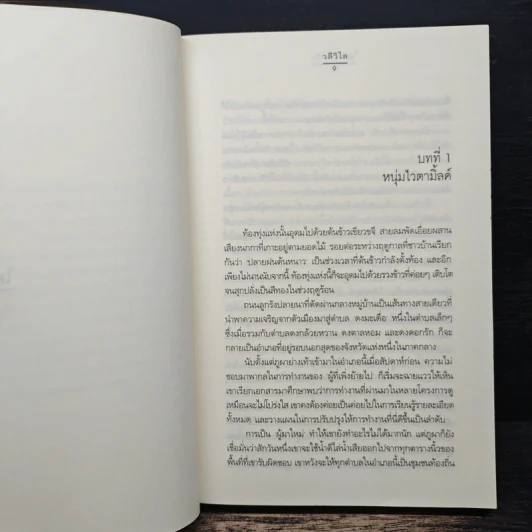 วสีวิไล
๑
บทที่ 1
หนุ่มไวตามิ้ลค์
ท้องทุ่งแห่งนั้นอุดมไปด้วยต้นข้าวเขียวขจี สายลมพัดเอื่อยผสาน
เสียงนกกาที่เกาะอยู่ตามยอดไม้ รอยต่อระหว่างฤดูกาลที่ชาวบ้านเรียก
กันว่า ปลายฝนต้นหนาว เป็นช่วงเวลาที่ต้นข้าวกำลังตั้งท้อง และอีก
เพียงไม่นานนับจากนี้ ท้องทุ่งแห่งนี้ก็จะอุดมไปด้วยรวงข้าวที่ค่อยๆ เติบโต
จนสุกปลั่งเป็นสีทองในช่วงฤดูร้อน
ถนนลูกรังปลายนาที่ตัดผ่านกลางหมู่บ้านเป็นเส้นทางสายเดียวที่
นำพาความเจริญจากตัวเมืองมาสู่ตำบล ดงมะเดื่อ หนึ่งในตำบลเล็กๆ
ซึ่งเมื่อรวมกับตำบลดงกล้วยหวาน ดงตาลหอม และดงดอกรัก ก็จะ
กลายเป็นอำเภอที่อยู่รอบนอกสุดของจังหวัดแห่งหนึ่งในภาคกลาง
นับตั้งแต่ภูผาย่างเท้าเข้ามาในอำเภอนี้เมื่อสัปดาห์ก่อน ความไม่
ชอบมาพากลในการทำงานของ 'ผู้ที่เพิ่งย้ายไป' ก็เริ่มจะฉายแววให้เห็น
เขาเรียกเอกสารมาศึกษาพบว่าการทำงานที่ผ่านมาในหลายโครงการดู
เหมือนจะไม่โปร่งใส เขาคงต้องค่อยเป็นค่อยไปในการเรียนรู้รายละเอียด
ทั้งหมด และวางแผนในการปรับปรุงให้การทำงานที่นี่ดีขึ้นเป็นลำดับ
การเป็น 'ผู้มาใหม่' ทำให้เขายังทำอะไรไม่ได้มากนัก แต่ภูผาก็ยัง
เชื่อมั่นว่าสักวันหนึ่งเขาจะใช้น้ำดีไล่น้ำเสียออกไปจากทุกตารางนิ้วของ
พื้นที่ที่เขารับผิดชอบ เขาหวังจะให้ทุกตำบลในอำเภอนี้เป็นชุมชนท้องถิ่น